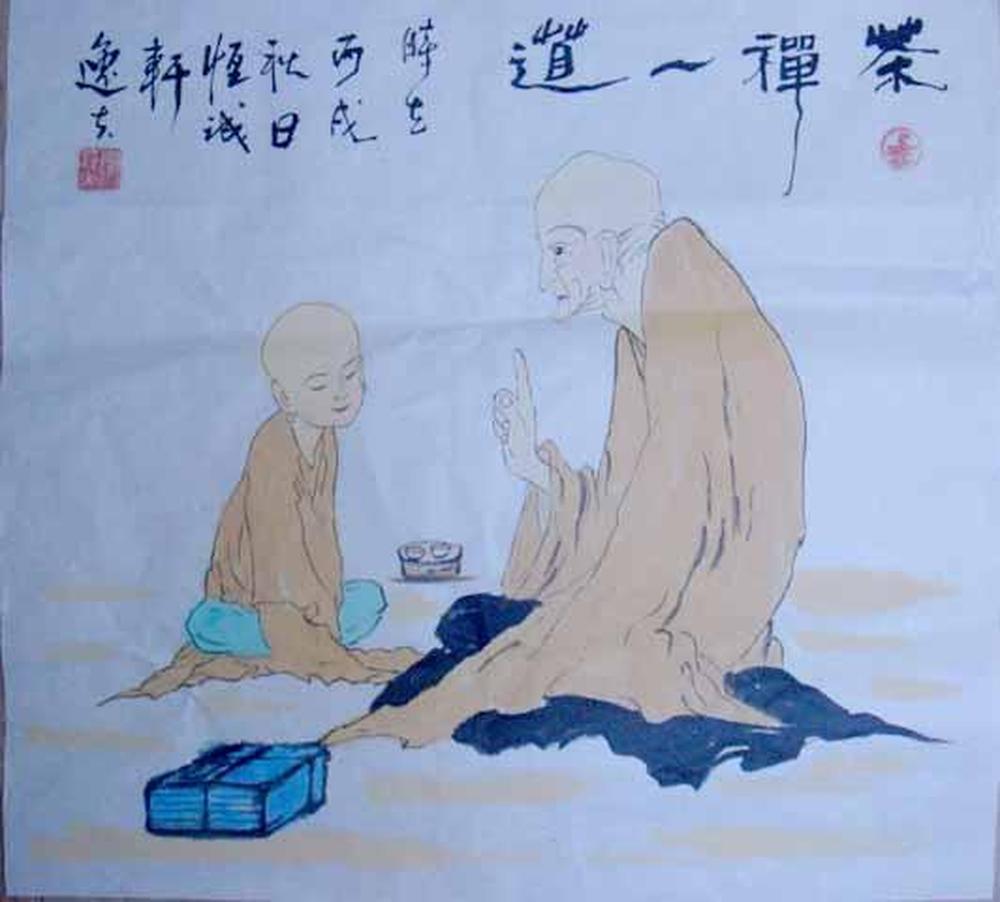 茶禪一道
時在
丙戌
秋日
恆誠
軒
逸夫